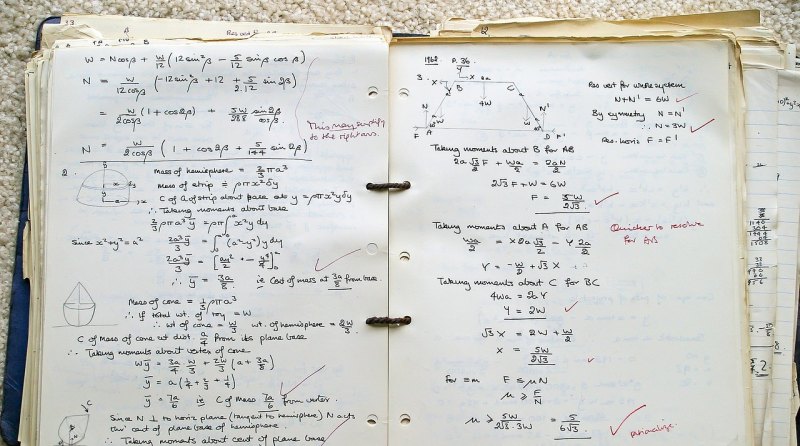 33
W = N cosβ + W/12 (12 sin²β - 5/12 sinβ cosβ)
N = W/12cosβ (-12 sin²β + 12 + 5/2.12 sin 2β)
= W/2cosβ (1 + cos2β) + 5W/288 sin2β/cosβ.
This may simplify
to the right ans.
N = W/2cosβ (1 + cos2β + 5/144 sin 2β)
2.
Mass of hemisphere = 2/3 πρa³
Mass of strip = ρπx²δy
C of G of strip about base as y = ρπx²yδy
∴ Taking moments about base
2/3 ρπa³ȳ = ρπ∫x²y dy
since x²+y² = a²
2a³ȳ/3 = ∫(a²-y²)y dy
2a³ȳ/3 = [ay²/2 - y⁴/4]
∴ ȳ = 3a/8 ie C of mass at 3a/8 from base.
Mass of cone = 1/3 ρπa³
∴ If total wt. of toy = W
∴ wt of cone = W/3 wt. of hemisphere = 2W/3
C of Mass of cone at dist. a/4 from its plane base
∴ Taking moments about vertex of cone
Wȳ = 3a/4 W/3 + 2W/3 (a + 3a/8)
ȳ = a(1/4 + 2/3 + 1/4)
ȳ = 7a/6 ie C of mass 7a/6 from vertex.
Since N ⊥ to horiz plane (tangent to hemisphere) N acts
thr' cent of plane base of hemisphere.
∴ Taking moments about cent of plane base
1968 P. 36
3.
X
2a
B
C
4W
N
N'
W
W
F
A
D
F'
Res vert for whole system
N + N' = 6W
By symmetry N = N'
∴ N = 3W
Res. horiz F = F'
Taking moments about B for AB
2a √3/2 F + Wa/2 = 2aN/2
2√3 F + W = 6W
F = 5W/2√3
Taking moments about A for AB
Quicker to resolve
for AB
Wa/2 = X2a√3/2 - Y 2a/2
Y = -W/2 + √3 X
Taking moments about C for BC
4Wa = 2aY
Y = 2W
√3 X = 2W + W/2
X = 5W/2√3
for =m F ≤ μN
μ ≥ F/N
μ ≥ 5W/2√3.3W = 5/6√3
rationalize.